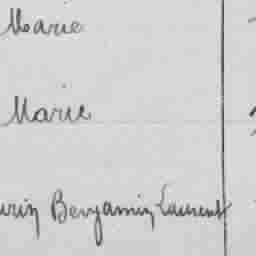 Marie
Marie
Benjamin Laurent